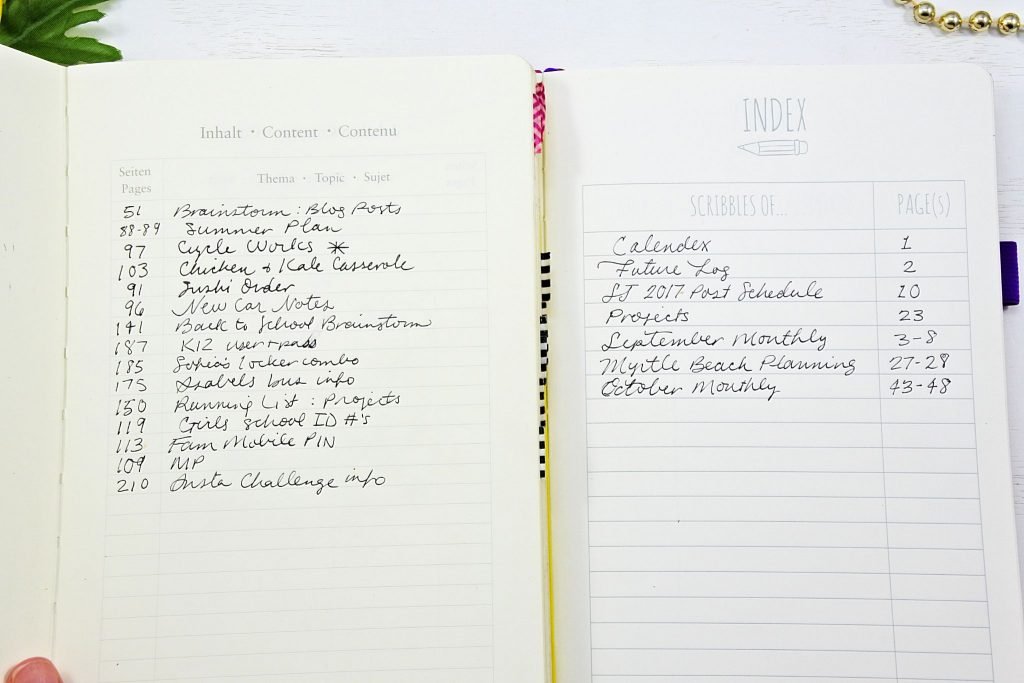 Inhalt · Content · Contenu
Seiten
Pages
Thema · Topic · Sujet
51 Brainstorm: Blog Posts
88-89 Summer Plan
97 Cycle Works *
103 Chicken & Kale Casserole
91 Sushi Order
96 New Car Notes
141 Back to School Brainstorm
187 K12 user+pass
185 Sofia's locker combo
175 Isabels bus info
150 Running List: Projects
119 Girls School ID #'s
113 Fam Mobile PIN
109 MP
210 Insta Challenge info
INDEX
SCRIBBLES OF... PAGE(S)
Calendex 1
Future Log 2
SJ 2017 Post Schedule 10
Projects 23
September Monthly 3-8
Myrtle Beach Planning 27-28
October Monthly 43-48